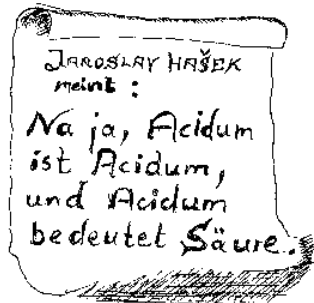 JAROSLAV HAŠEK
meint :
Na ja, Acidum
ist Acidum,
und Acidum
bedeutet Säure.